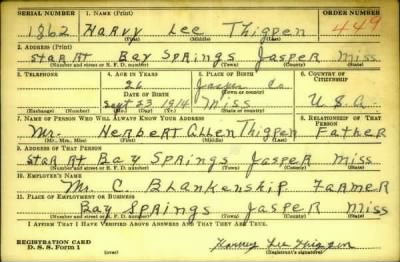 SERIAL NUMBER 1. NAME (Print) ORDER NUMBER
1862 Harvy Lee Thigpen 449
(First) (Middle) (Last)
2. ADDRESS (Print)
Star Rt Bay Springs Jasper Miss
(Number and street or R. F. D. number) (Town) (County) (State)
3. TELEPHONE 4. AGE IN YEARS 5. PLACE OF BIRTH 6. COUNTRY OF CITIZENSHIP
26 Jasper Co.
DATE OF BIRTH (Town or county)
Sept 23 1914 Miss U.S.A.
(Exchange) (Number) (Mo.) (Day) (Yr.) (State or country)
7. NAME OF PERSON WHO WILL ALWAYS KNOW YOUR ADDRESS 8. RELATIONSHIP OF THAT PERSON
Mr. Herbert Allen Thigpen Father
(Mr., Mrs., Miss) (First) (Middle) (Last)
9. ADDRESS OF THAT PERSON
Star Rt Bay Springs Jasper Miss
(Number and street or R. F. D. number) (Town) (County) (State)
10. EMPLOYER'S NAME
Mr. C. Blankenship Farmer
11. PLACE OF EMPLOYMENT OR BUSINESS
Bay Springs Jasper Miss
(Number and street or R. F. D. number) (Town) (County) (State)
I AFFIRM THAT I HAVE VERIFIED ABOVE ANSWERS AND THAT THEY ARE TRUE.
REGISTRATION CARD
D. S. S. Form 1 Harvey Lee Thigpen
(Registrant's signature)